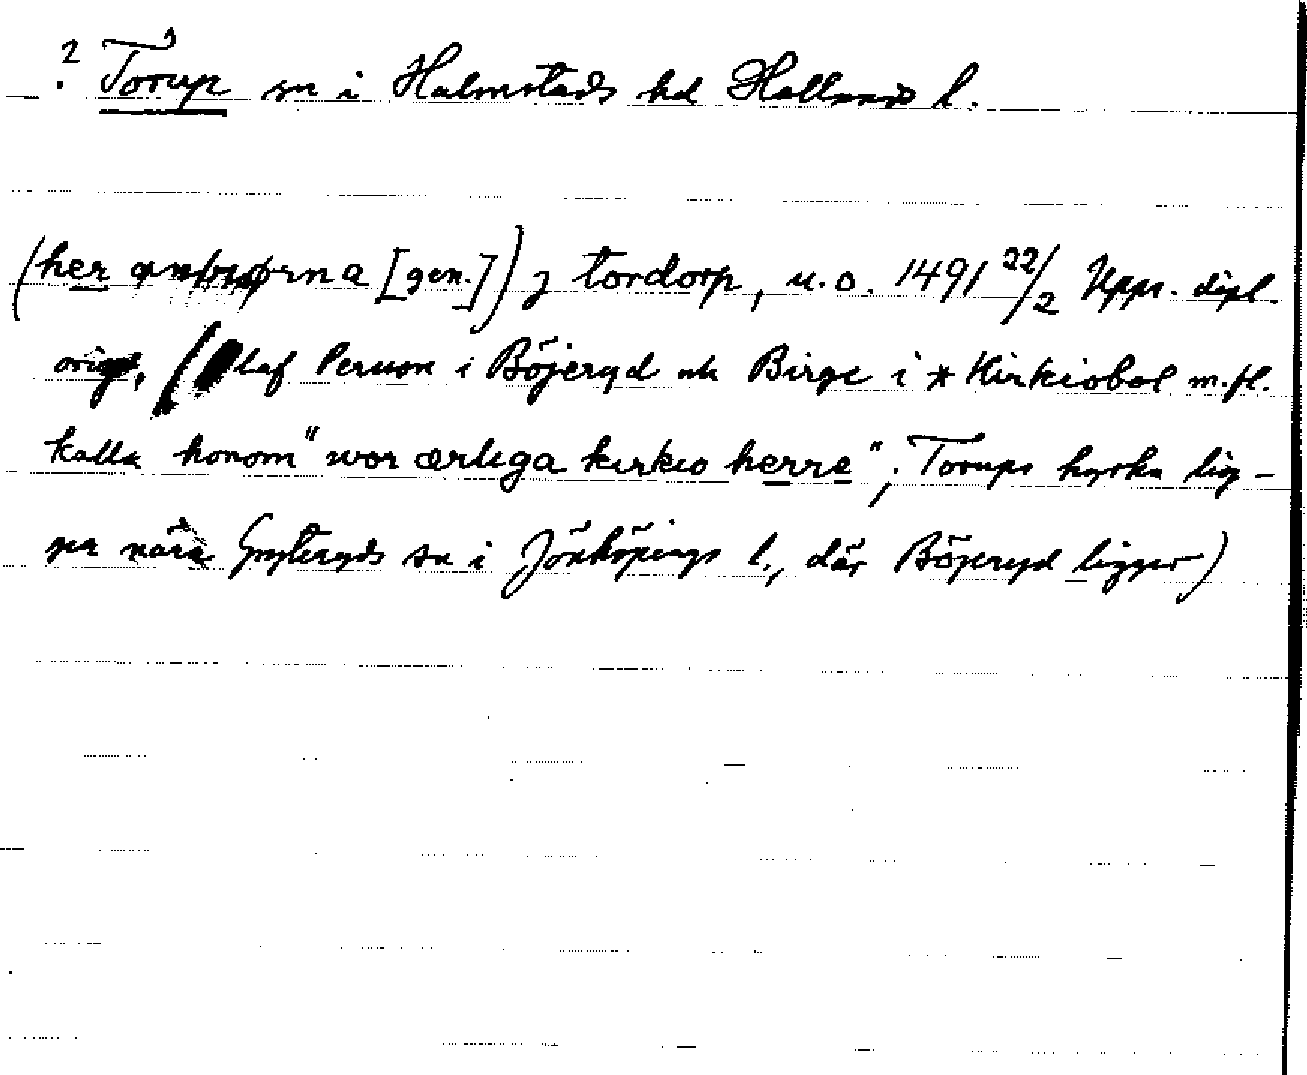 ? Torup sn i Halmstads hd Hallands l.
(her ørna [gen.]) j tordorp, u.o. 1491 22/2 Upps. dipl.
orig. (Olaf Person i Böjeryd och Birge i * Kirkiobol m.fl.
kalla honom "wor ærliga kirkio herre"; Torups kyrka lig-
ger nära Gryteryds sn i Jönköpings l., där Böjeryd ligger)